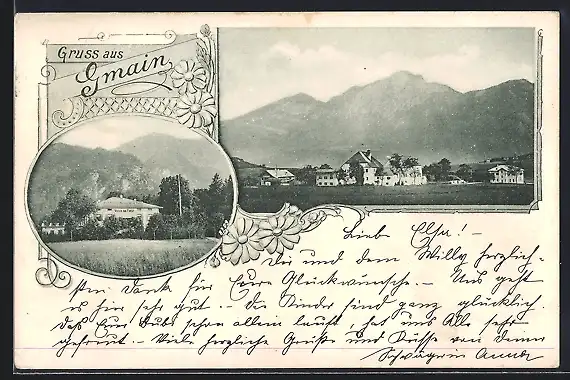 Gruss aus
Gmain
Lieb Elsa! –
Dir und dem Willy herzlich-
sten Dank für Eure Glückwünsche. – Uns geht
es hier sehr gut. Die Kinder sind ganz glücklich.
daß Euer Bubi schon allein lauft, hat uns Alle sehr
gefreut. – Viele herzliche Grüße und Küsse von Deiner
Schwägerin Anna